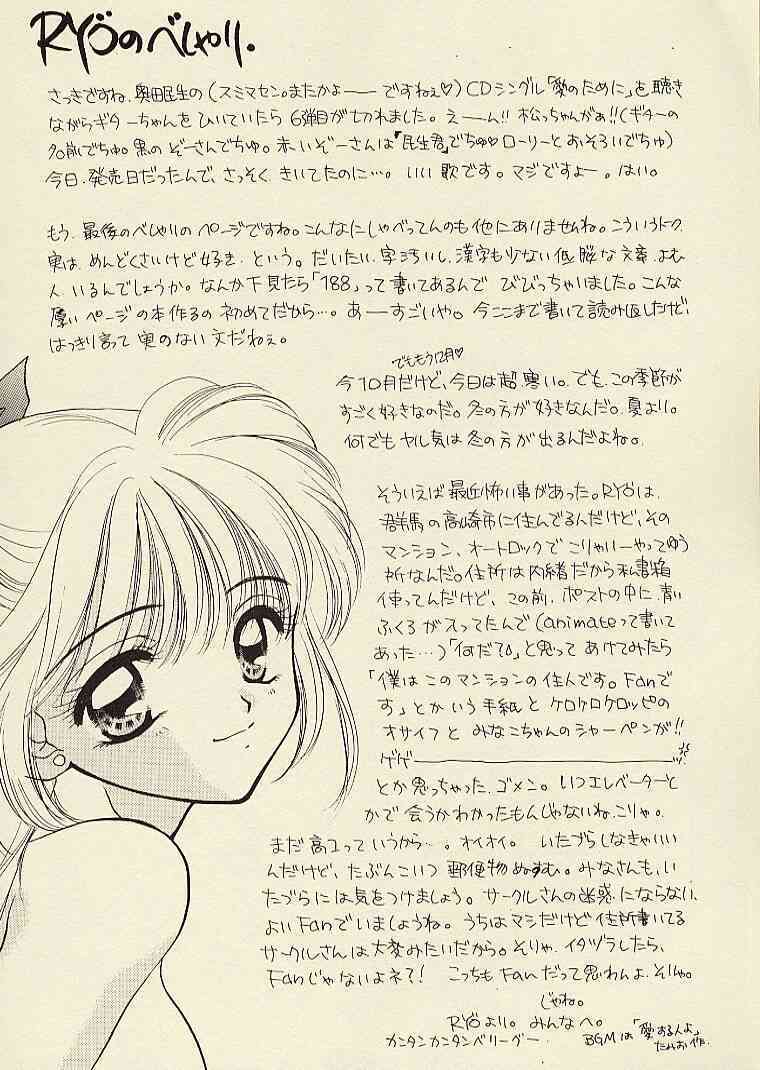 RYÖのべしゃり.
さっきですね、奥田民生の(スミマセン。またかよーーですねぇ♡)CDシングル「愛のために」を聴き
ながらギターちゃんをひいていたら6弾目が切れました。えーーん!!松っちゃんがぁ!!(ギターの
名前でちゅ。黒のぞーさんでちゅ。赤いぞーさんは「民生君」でちゅ♡ローリーとおそろいでちゅ)
今日、発売日だったんで、さっそくきいてたのに…。いい歌です。マジですよー。はい。
もう、最後のべしゃりのページですね。こんなにしゃべってんのも他にありませんね。こういうトーク
実は、めんどくさいけど好き、という。だいたい、字汚いし、漢字も少ない低脳な文章、よむ
人、いるんでしょうか。なんか下見たら「188」って書いてあるんで びびっちゃいました。こんな
厚いページの本作るの初めてだから…。あーーすごいや。今ここまで書いて読み返したけど、
はっきり言って実のない文だねぇ。
でももう12月♡
今10月だけど、今日は超寒い。でも、この季節が
すごく好きなのだ。冬の方が好きなんだ。夏より。
何でもヤル気は冬の方が出るんだよね。
そういえば最近怖い事があった。RYÖは、
群馬の高崎市に住んでるんだけど、その
マンション、オートロックでこりゃいーやってゆう
所なんだ。住所は内緒だから私書箱
使ってんだけど、この前、ポストの中に青い
ふくろが入ってたんで(animateって書いて
あった…)「何だ?」と思ってあけてみたら
「僕はこのマンションの住人です。Fanで
す」とかいう手紙とケロケロケロッピの
オサイフとみなこちゃんのシャーペンが!!
ゲゲーーー
とか思っちゃった、ゴメン。いつエレベーターと
かで会うかわかったもんじゃないね、こりゃ。
まだ高1っていうから…。オイオイ。いたづらしなきゃいい
んだけど、たぶんこいつ郵便物ぬすむ。みなさんも、い
たづらには気をつけましょう。サークルさんの迷惑にならない、
よいFanでいましょうね。うちはマシだけど住所書いてる
サークルさんは大変みたいだから。そりゃ、イタヅラしたら、
Fanじゃないよネ?!こっちもFanだって思わんよ、そりゃ。
じゃね。
RYÖより。みんなへ。
カンタンカンタンベリーグー.
BGMは「愛する人よ」
たみお作.